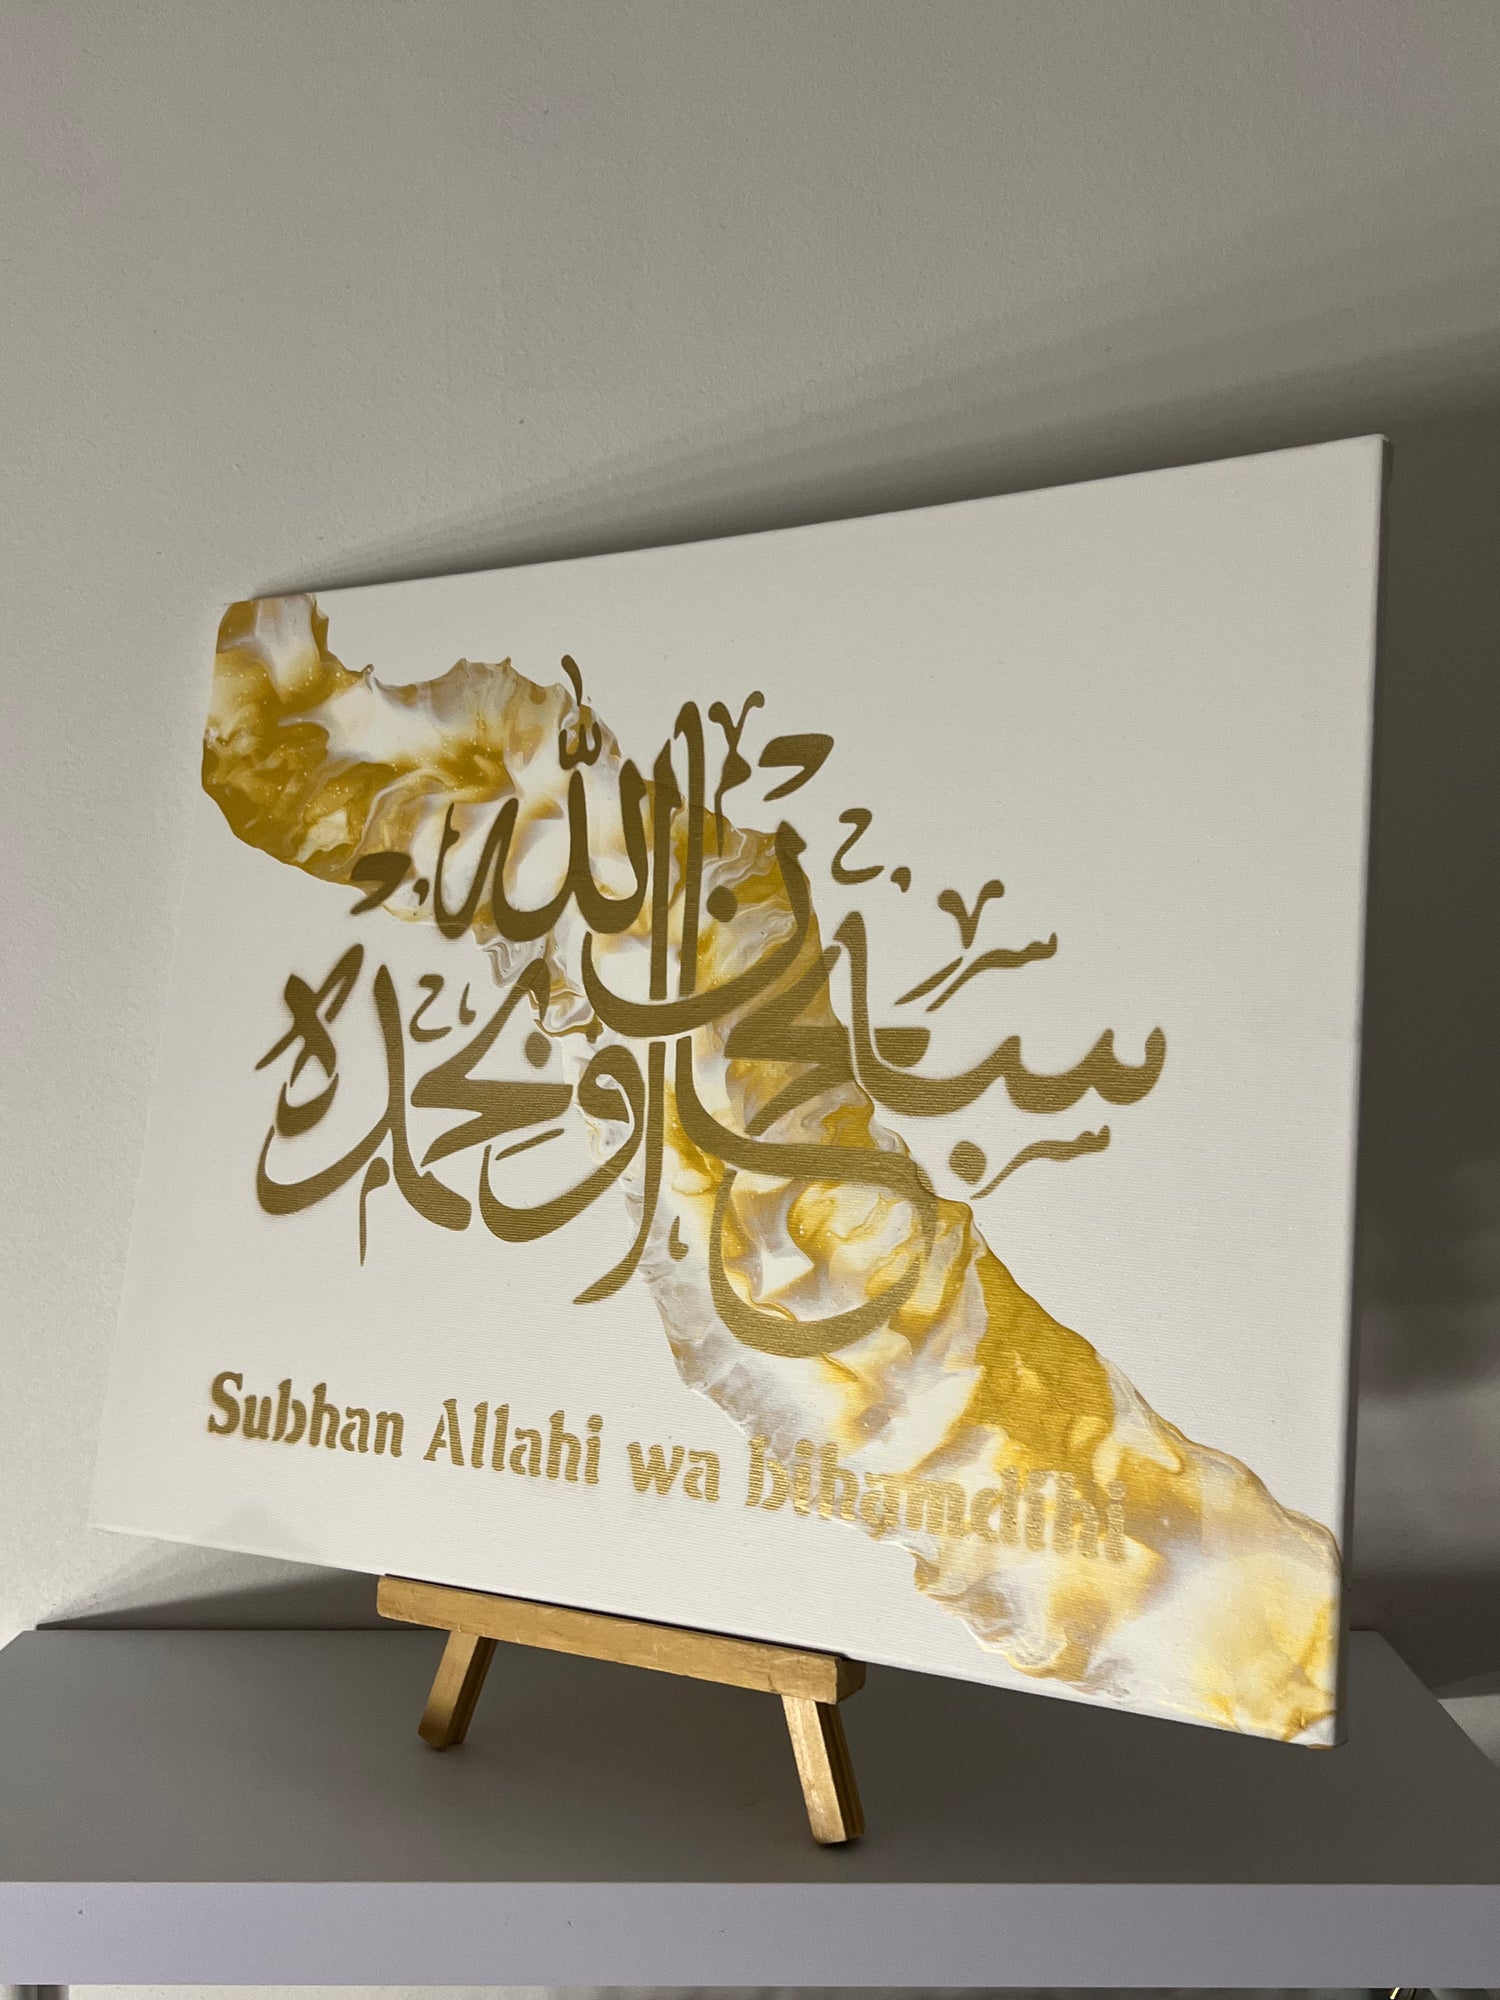 سبحان الله وبحمده
Subhan Allahi wa bihamdihi